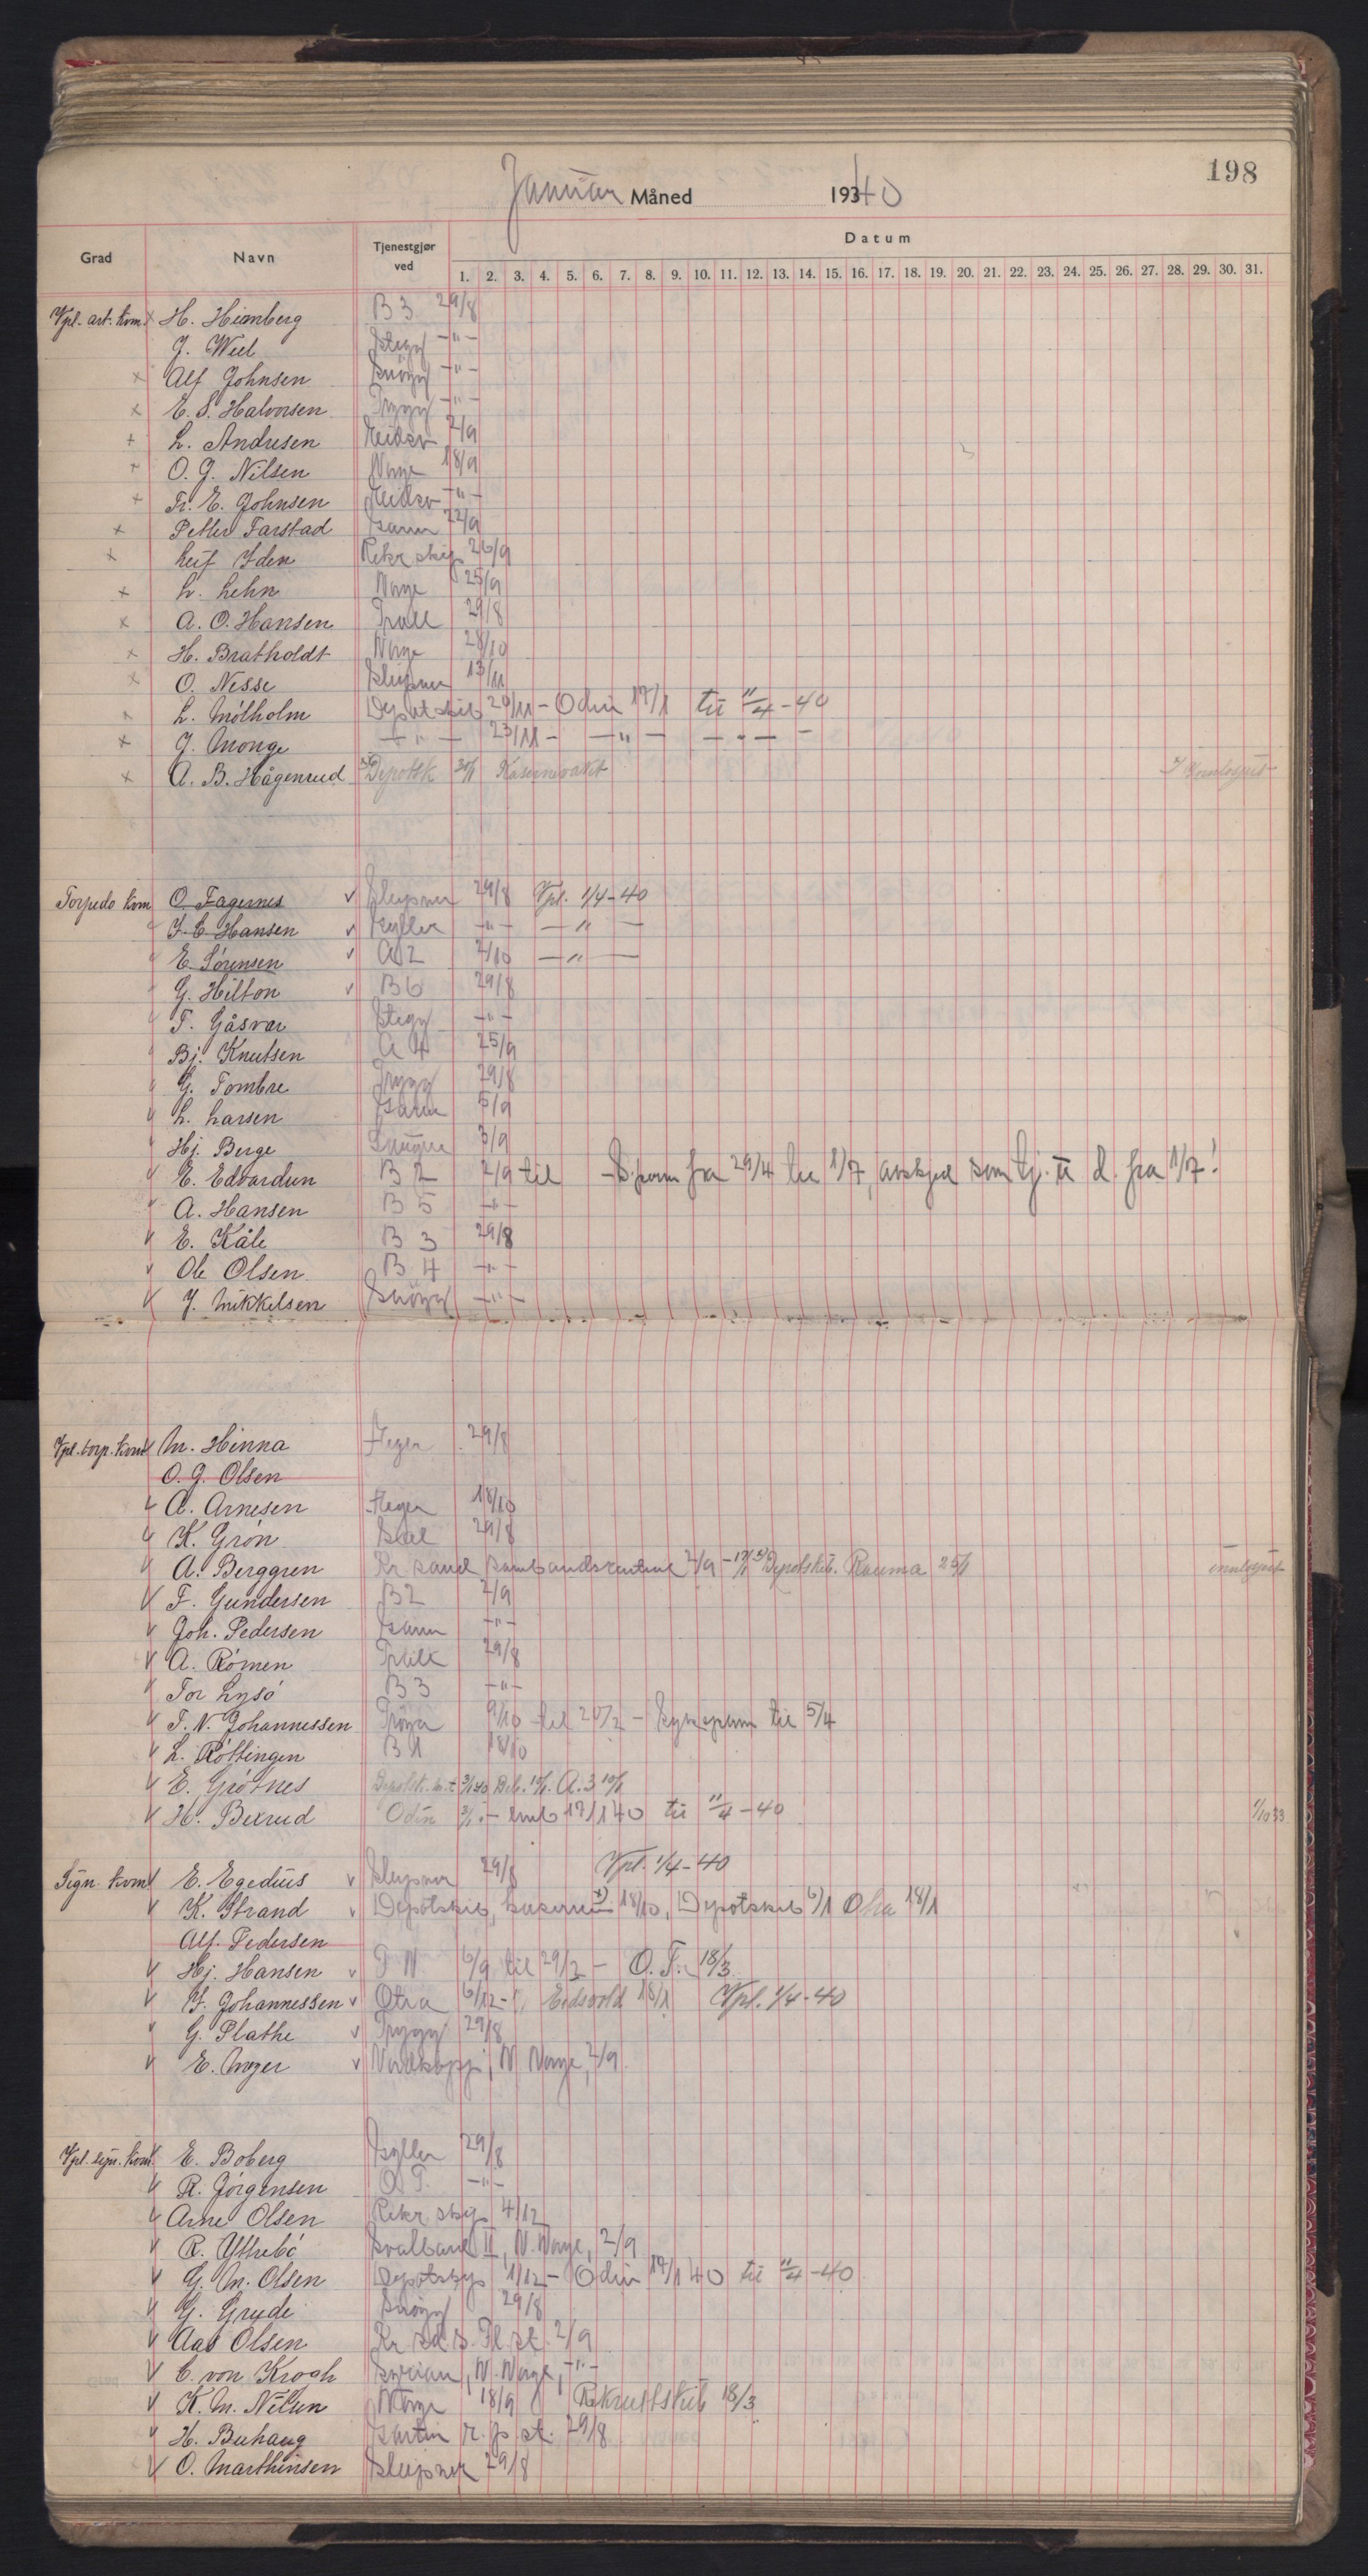 198
Januar Måned 193 40
Grad Navn Tjenestgjør ved Datum
1. 2. 3. 4. 5. 6. 7. 8. 9. 10. 11. 12. 13. 14. 15. 16. 17. 18. 19. 20. 21. 22. 23. 24. 25. 26. 27. 28. 29. 30. 31.
Vpl. art. kom. x H. Heimberg B 3 29/8
J. Wiel Stegg -"-
x Alf Johnsen Snögg -"-
x E. S. Halvorsen Trygg -"-
+ L. Andresen Eidsv 2/9
O. G. Nilsen Norge 18/9
x Fr. E. Johnsen Eidsv -"-
x Petter Farstad Garm 22/9
x Leif Iden Rekr skip 26/9
x L. Lehn Norge 25/9
x A. O. Hansen Troll 29/8
x H. Bratholdt Norge 28/10
x O. Nesse Sleipner 13/11
x L. Mölholm Depotskib 20/11 - Odin 17/1 til 11/4 - 40
x J. Monge -"- 23/11 - -"- -"-
x A. B. Hågenrud Depotsk 30/1 Kasernevakt
Torpedo kom O. Fagernes v Sleipner 29/8 Vpl. 1/4-40
I. C. Hansen v Kjeller -"- -"-
E Sörensen v A 2 2/10 -"-
G. Hilton v B 6 29/8
T. Gåsvær Stegg -"-
Bj. Knutsen A 4 25/9
G. Tombre Trygg 29/8
L. Larsen Garm 5/9
Hj. Berge 3/9
E. Edvardsen B 2 2/9 til perm fra 29/4 til 1/7, avskjed som tj. II d. fra 1/7!
A. Hansen B 5 -"-
E. Kåle B 3 29/8
Ole Olsen B 4 -"-
J. Mikkelsen Snögg -"-
Vpl. torp. kom M. Hinna Æger 29/8
O. G. Olsen
A. Arnesen Æger 18/10
K. Grön Sæl 29/8
A. Berggren Kr. sand Sambandscentral 2/9 - Depotskib. Rauma 25/1
F. Gundersen B2 2/9
Joh. Pedersen Garm -"-
A. Römen Troll 29/8
Tor Lysö B 3 -"-
T. N. Johannessen Fröya 9/10 til 20/2 - Sykeperm til 5/4
L. Röttingen 18/10
E. Grötnes A. 3 10/1
H. Bierud Odin emb 17/1 40 til 11/4 - 40
Sign. kom E. Egedius v Sleipner 29/8 Vpl. 1/4-40
K. Strand v Depotskib, 18/10, Depotskib 6/1 Otra 18/1
Alf. Pedersen
Hj. Hansen v 6/9 til 29/2 - O. T. 18/3
I. Johannessen v Otra 6/12 - Eidsvold 18/1 Vpl. 1/4-40
G. Plathe v Trygg 29/8
E. Meyer v Nordkapp, N Norge, 2/9
Vpl. sign. kom. E. Boberg Gyller 29/8
R. Jörgensen O. T. -"-
Arne Olsen Rekr skip 4/12
R. Yttrebö Svalbard II, N. Norge, 2/9
G. M. Olsen Depotskip 1/12 - Odin 17/1 40 til 11/4 - 40
G. Grude Snögg 29/8
Aas Olsen Kr sd s. Fl. st. 2/9
C. von Krogh N. Norge, -"-
K. M. Nilsen Norge 18/9 Rekruttskib 18/3
H. Buhaug r. p. st. 29/8
O. Marthinsen Sleipner 29/8